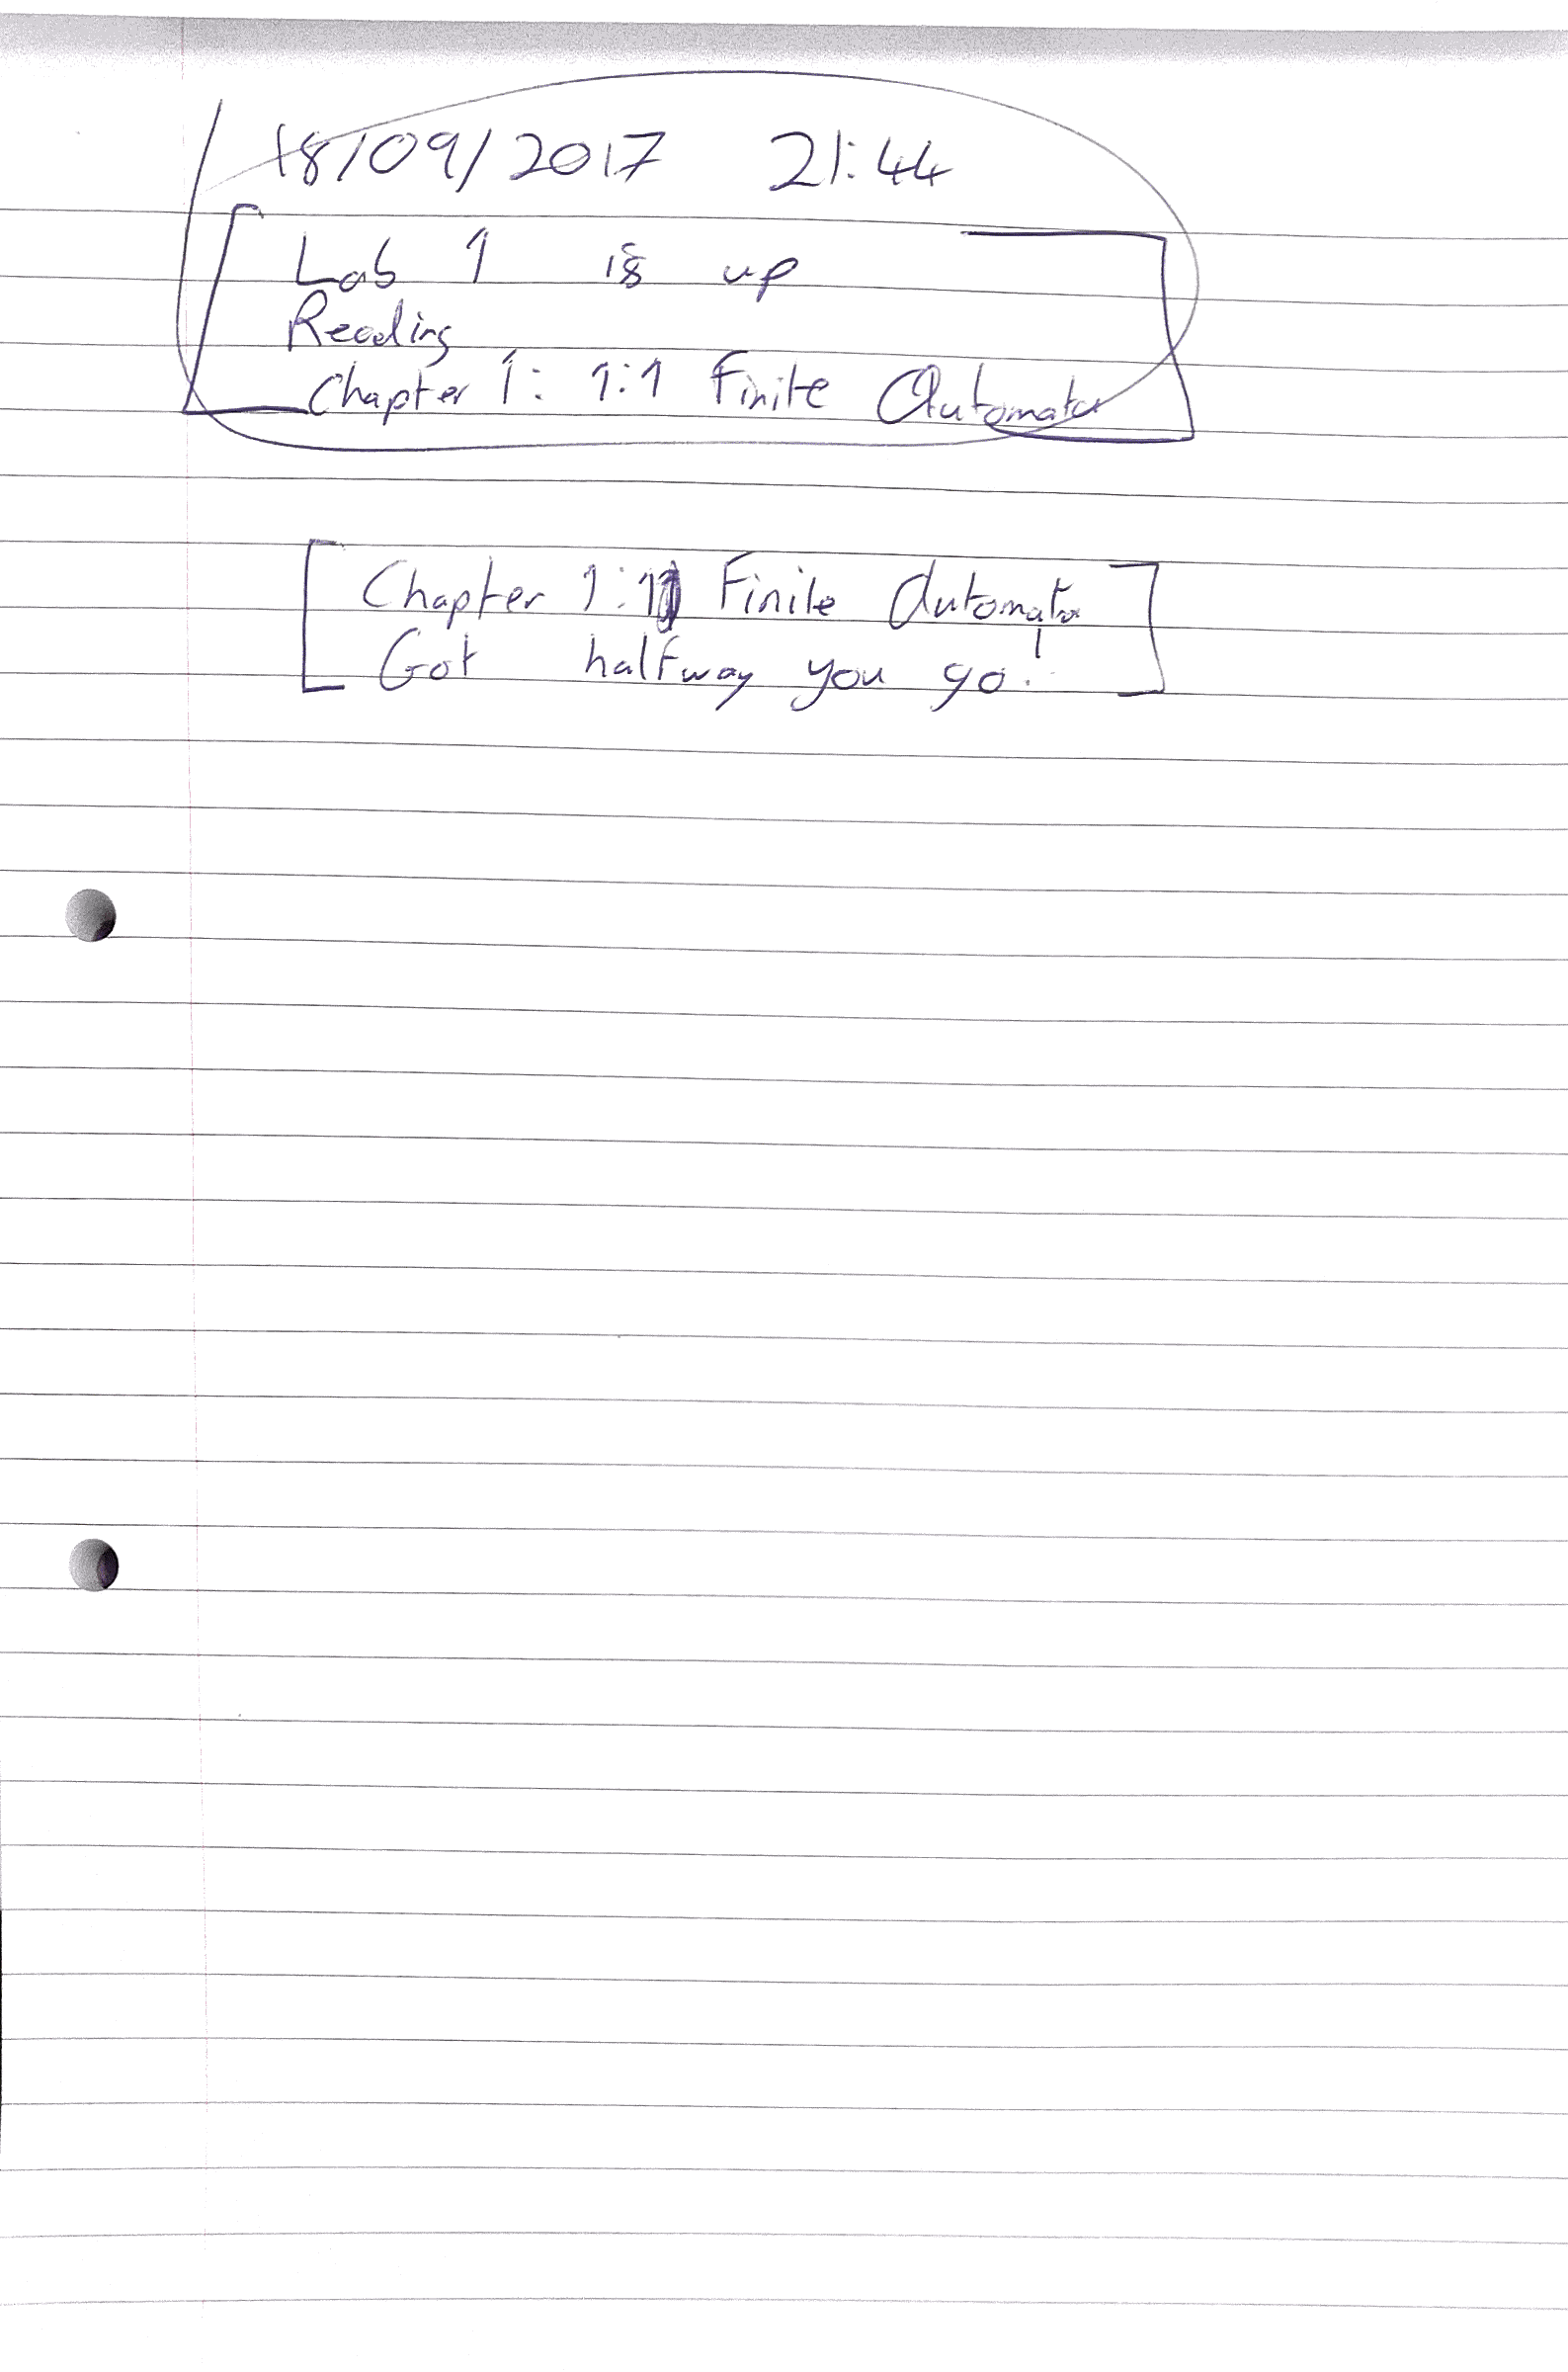 18/09/2017 21:44
Lab 1 is up
Reading
Chapter 1: 1:1 Finite Automata
Chapter 1:1 Finite Automata
Got halfway you go!